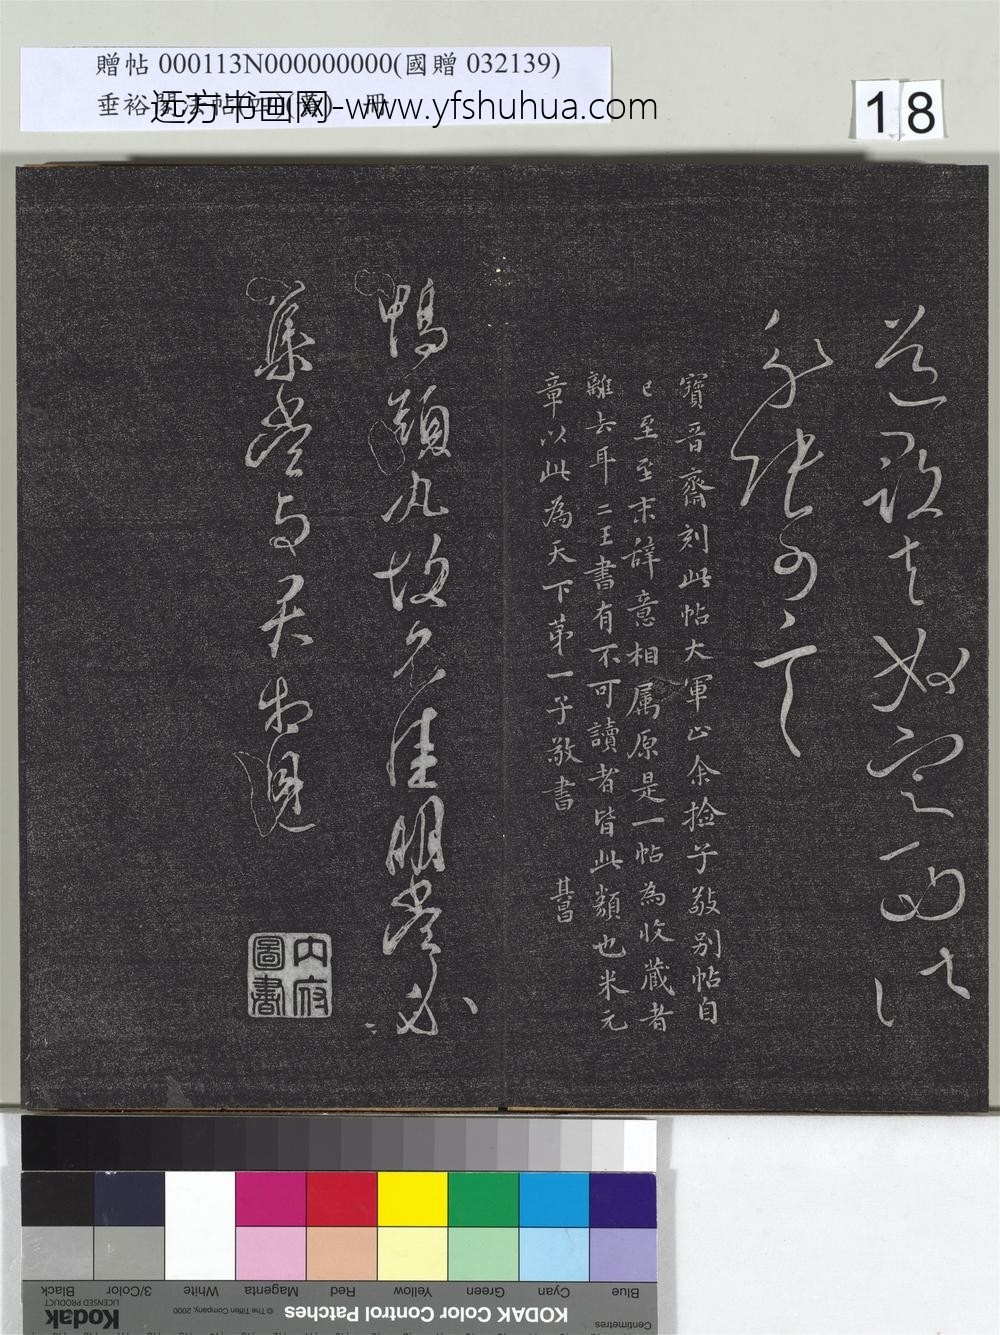 贈帖 000113N000000000(國贈 032139)
垂裕閣法帖 冊
远方书画网-www.yfshuhua.com
18
奴定西
分張可言
寶晉齋刻此帖大軍止余撿子敬别帖自
已至至末辭意相属原是一帖為收藏者
離去耳二王書有不可讀者皆此類也米元
章以此為天下苐一子敬書 其昌
鴨頭丸故不佳明當必
集當与君相見
內府圖書
Blue Cyan Green Yellow Red Magenta White 3/Color Black
KODAK Color Control Patches
© The Tiffen Company, 2000
Kodak
LICENSED PRODUCT
Centimetres